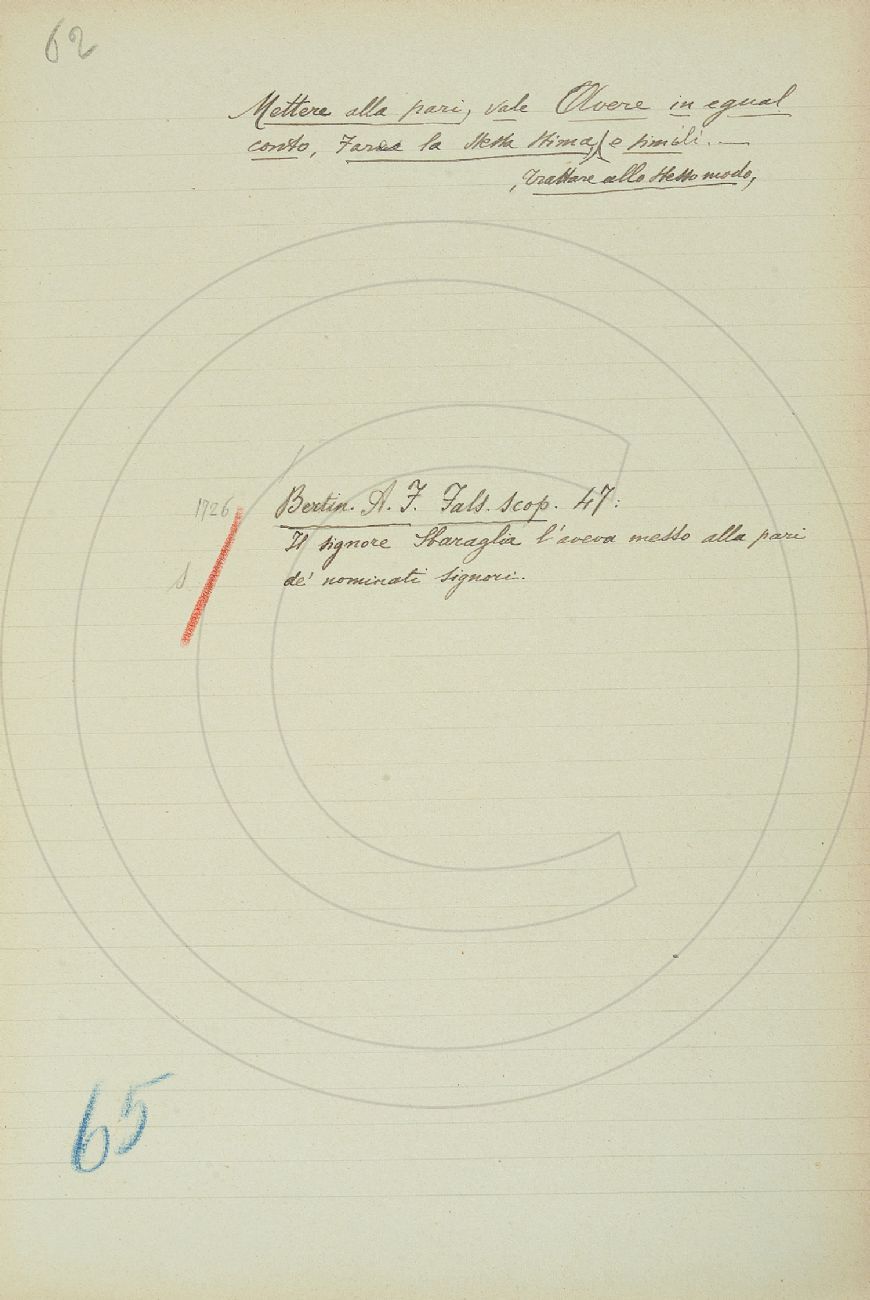 62
Mettere alla pari, vale Avere in egual
conto, Fare la stessa stima, e simili. —
, Trattare allo stesso modo,
1726
Bertin. A. F. Fals. scop. 47:
Il signore Sbaraglia l'aveva messo alla pari
de' nominati signori.
S
65